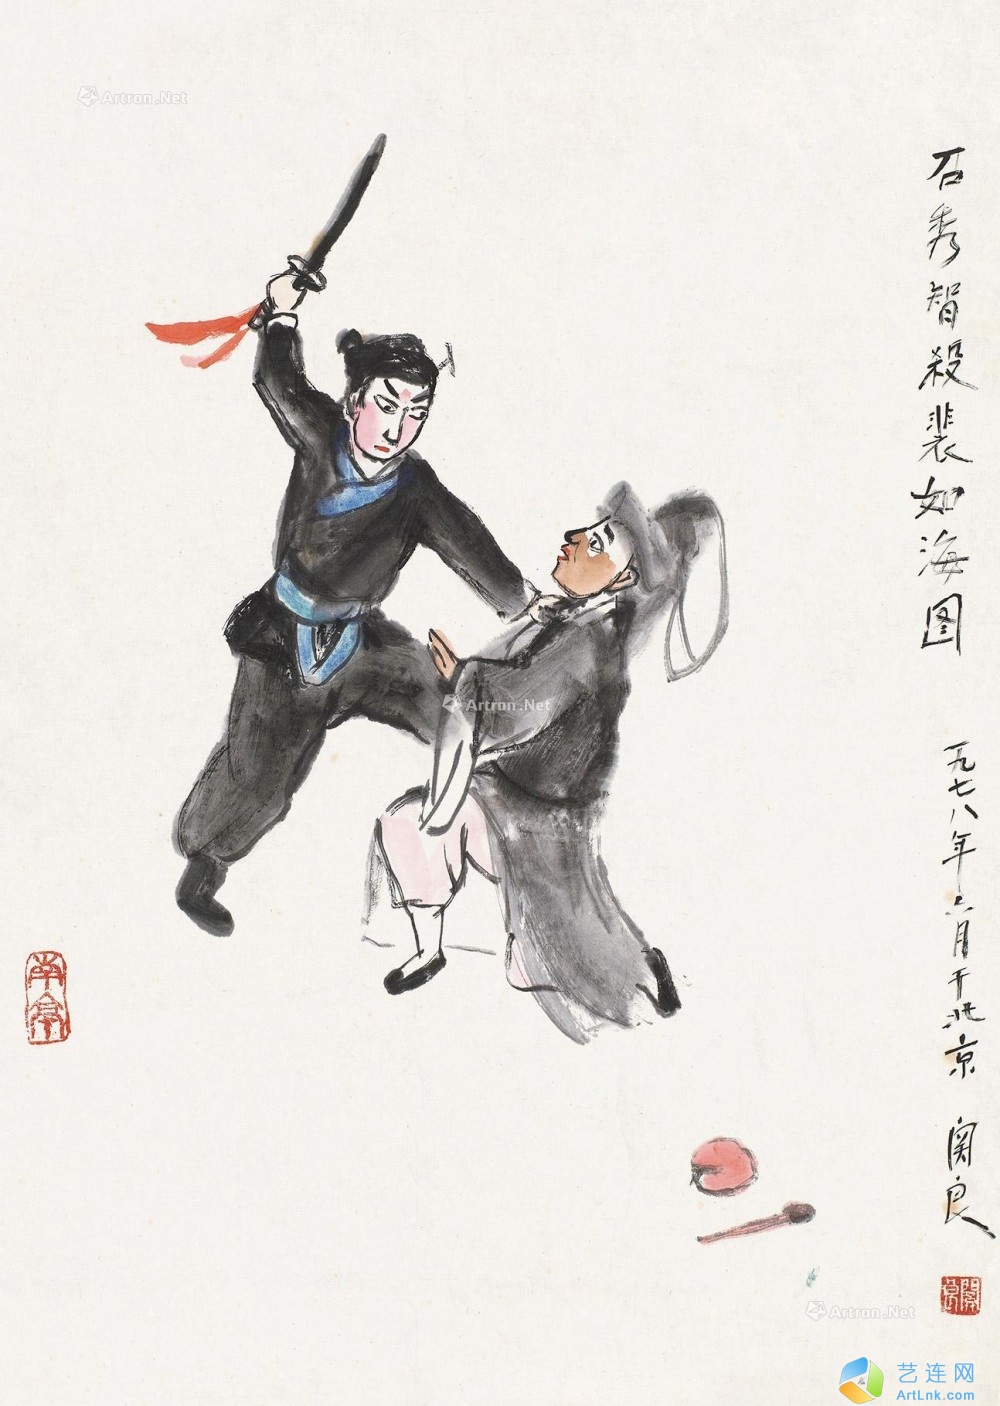 石秀智殺裴如海图
一九七八年六月于北京
関良
南亭
關良
Artron.Net
Artron.Net
Artron.Net
艺连网
ArtLnk.com